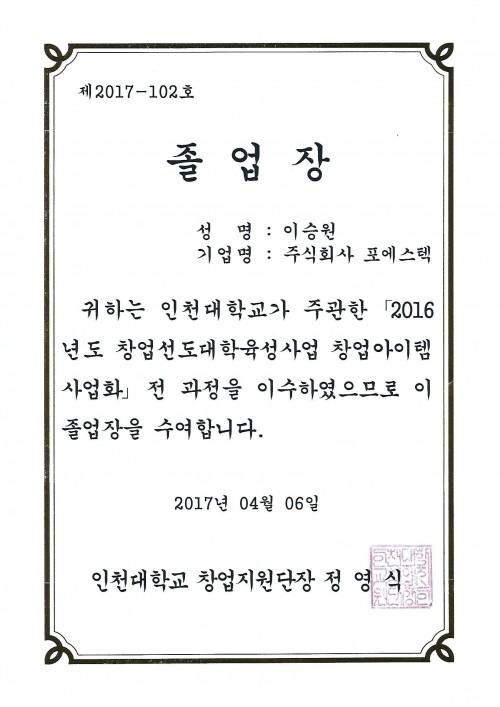 제2017-102호
졸 업 장
성 명 : 이승원
기업명 : 주식회사 포에스텍
귀하는 인천대학교가 주관한 「2016
년도 창업선도대학육성사업 창업아이템
사업화」 전 과정을 이수하였으므로 이
졸업장을 수여합니다.
2017년 04월 06일
인천대학교 창업지원단장 정 영 식